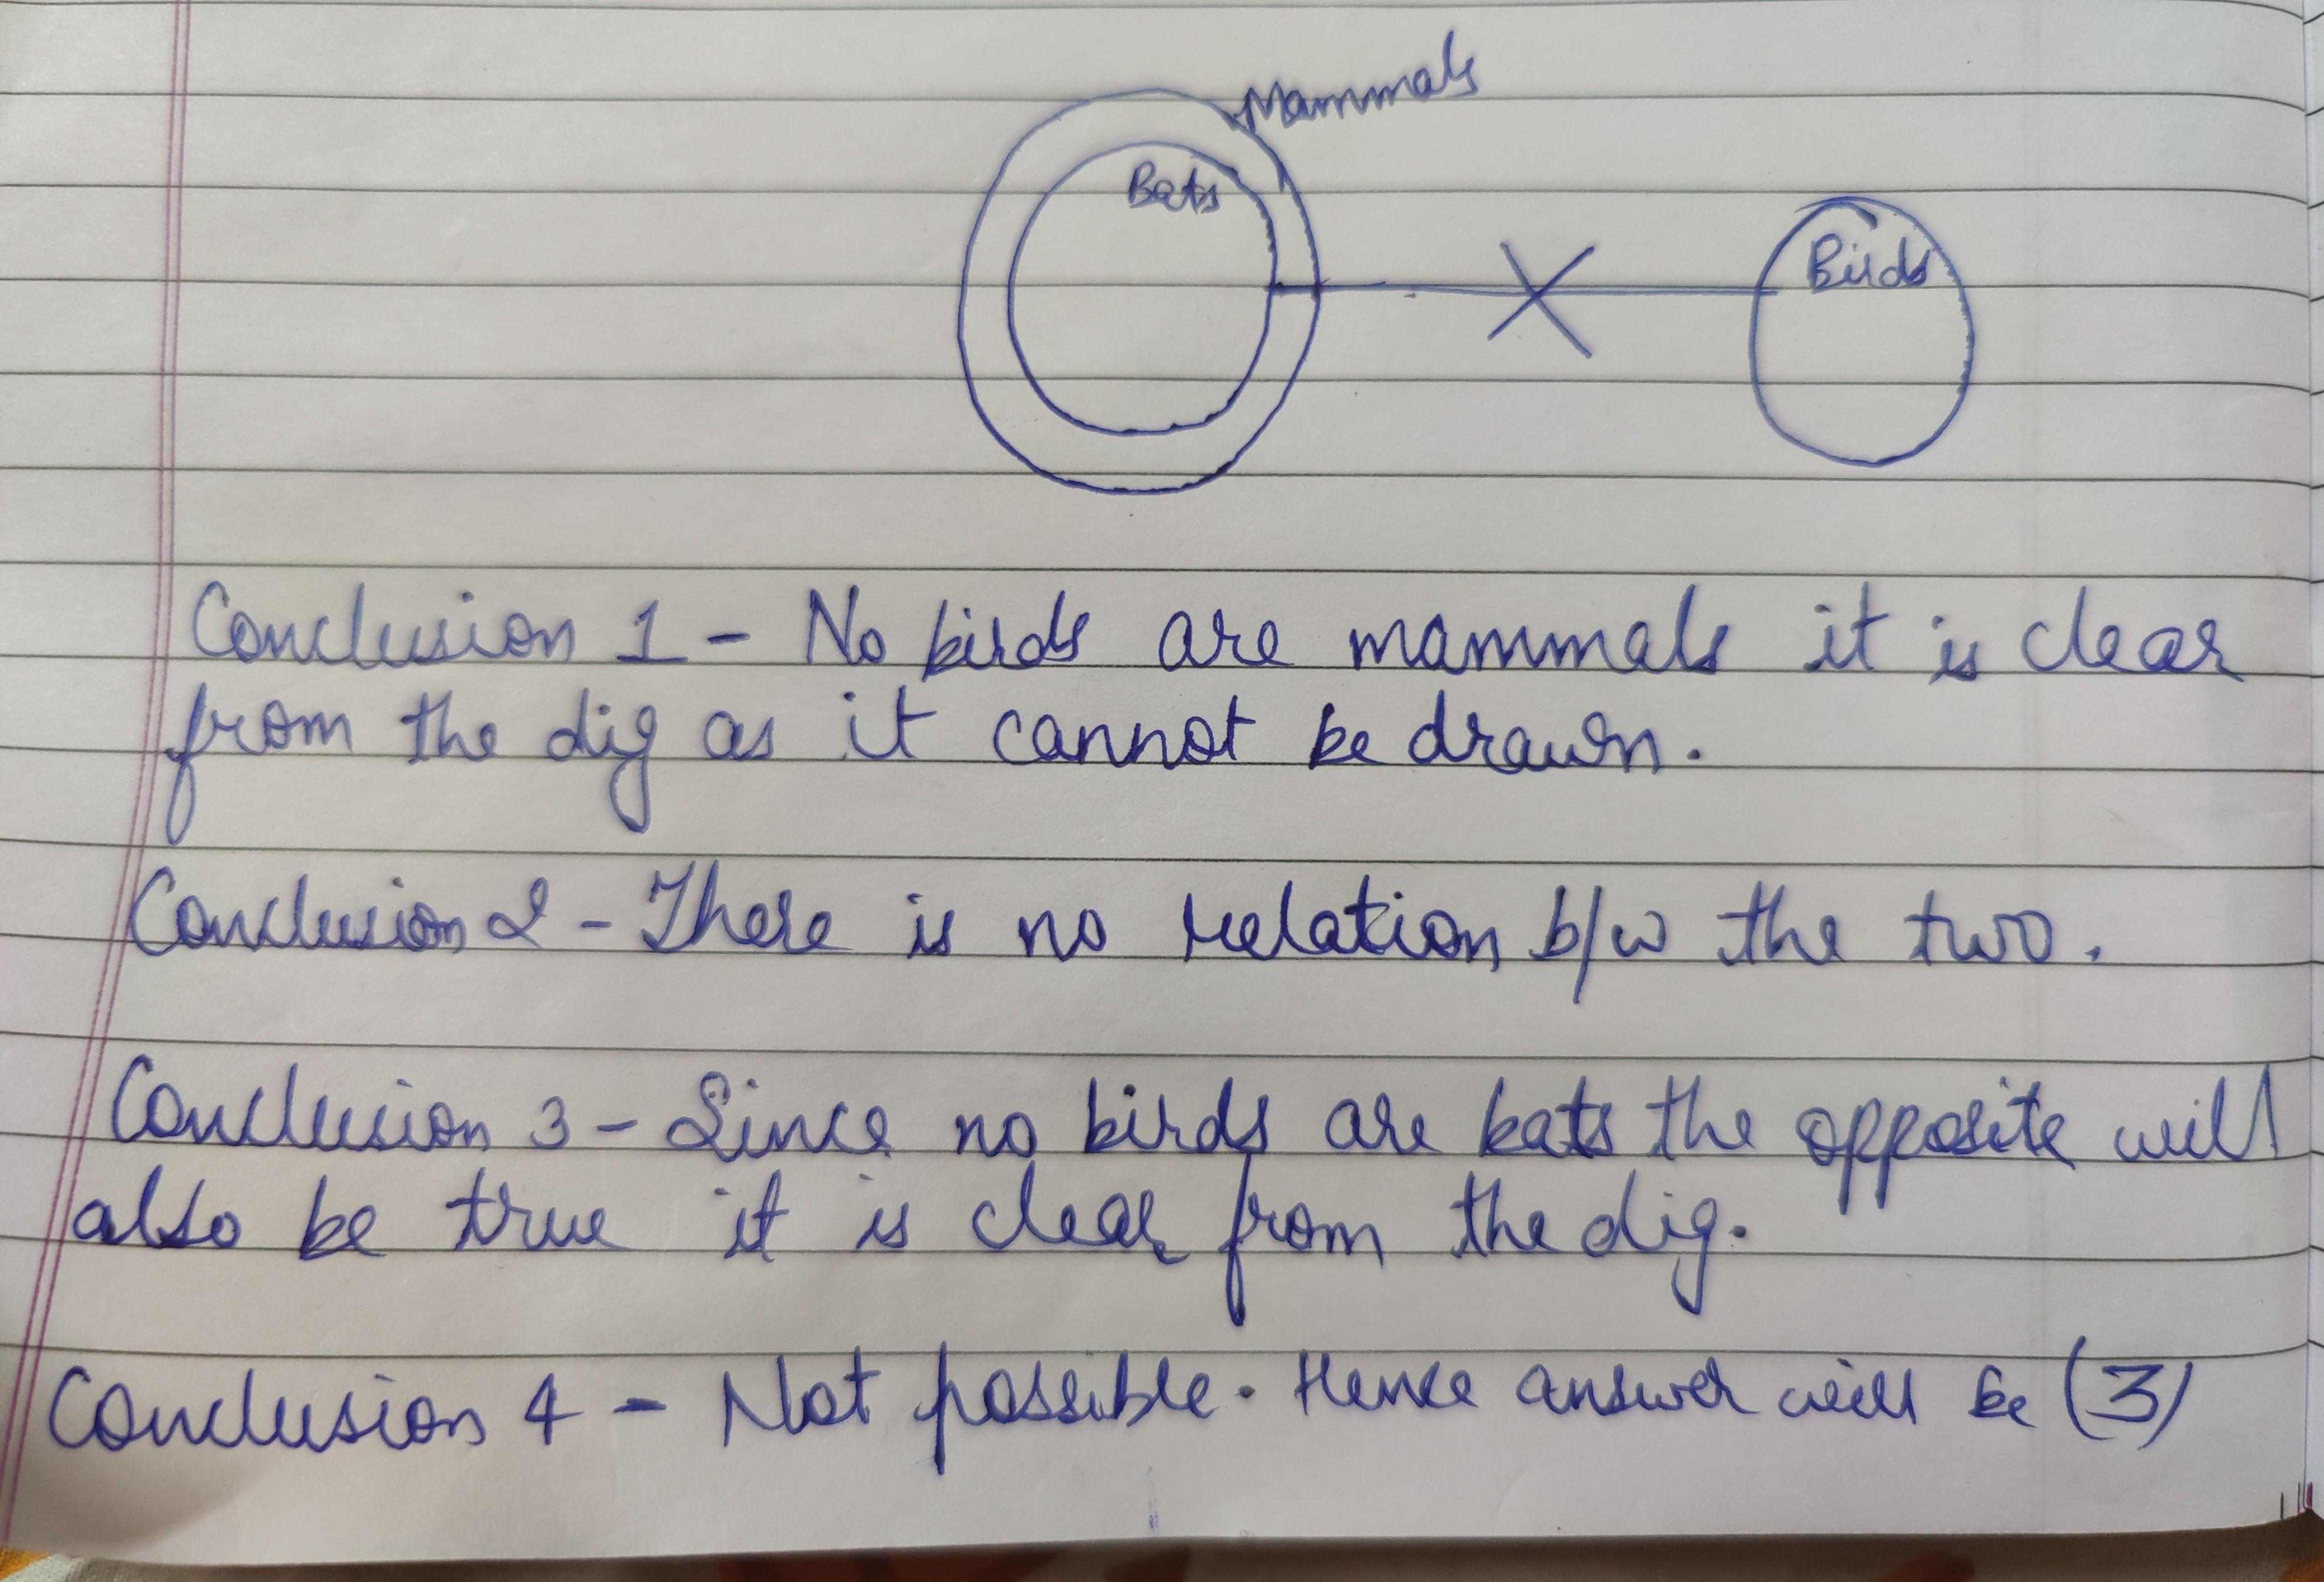 Mammals
Bats
Birds
Conclusion 1 - No birds are mammals it is clear
from the dig as it cannot be drawn.
Conclusion 2 - There is no relation b/w the two.
Conclusion 3 - Since no birds are bats the opposite will
also be true it is clear from the dig.
Conclusion 4 - Not possible. Hence answer will be (3)